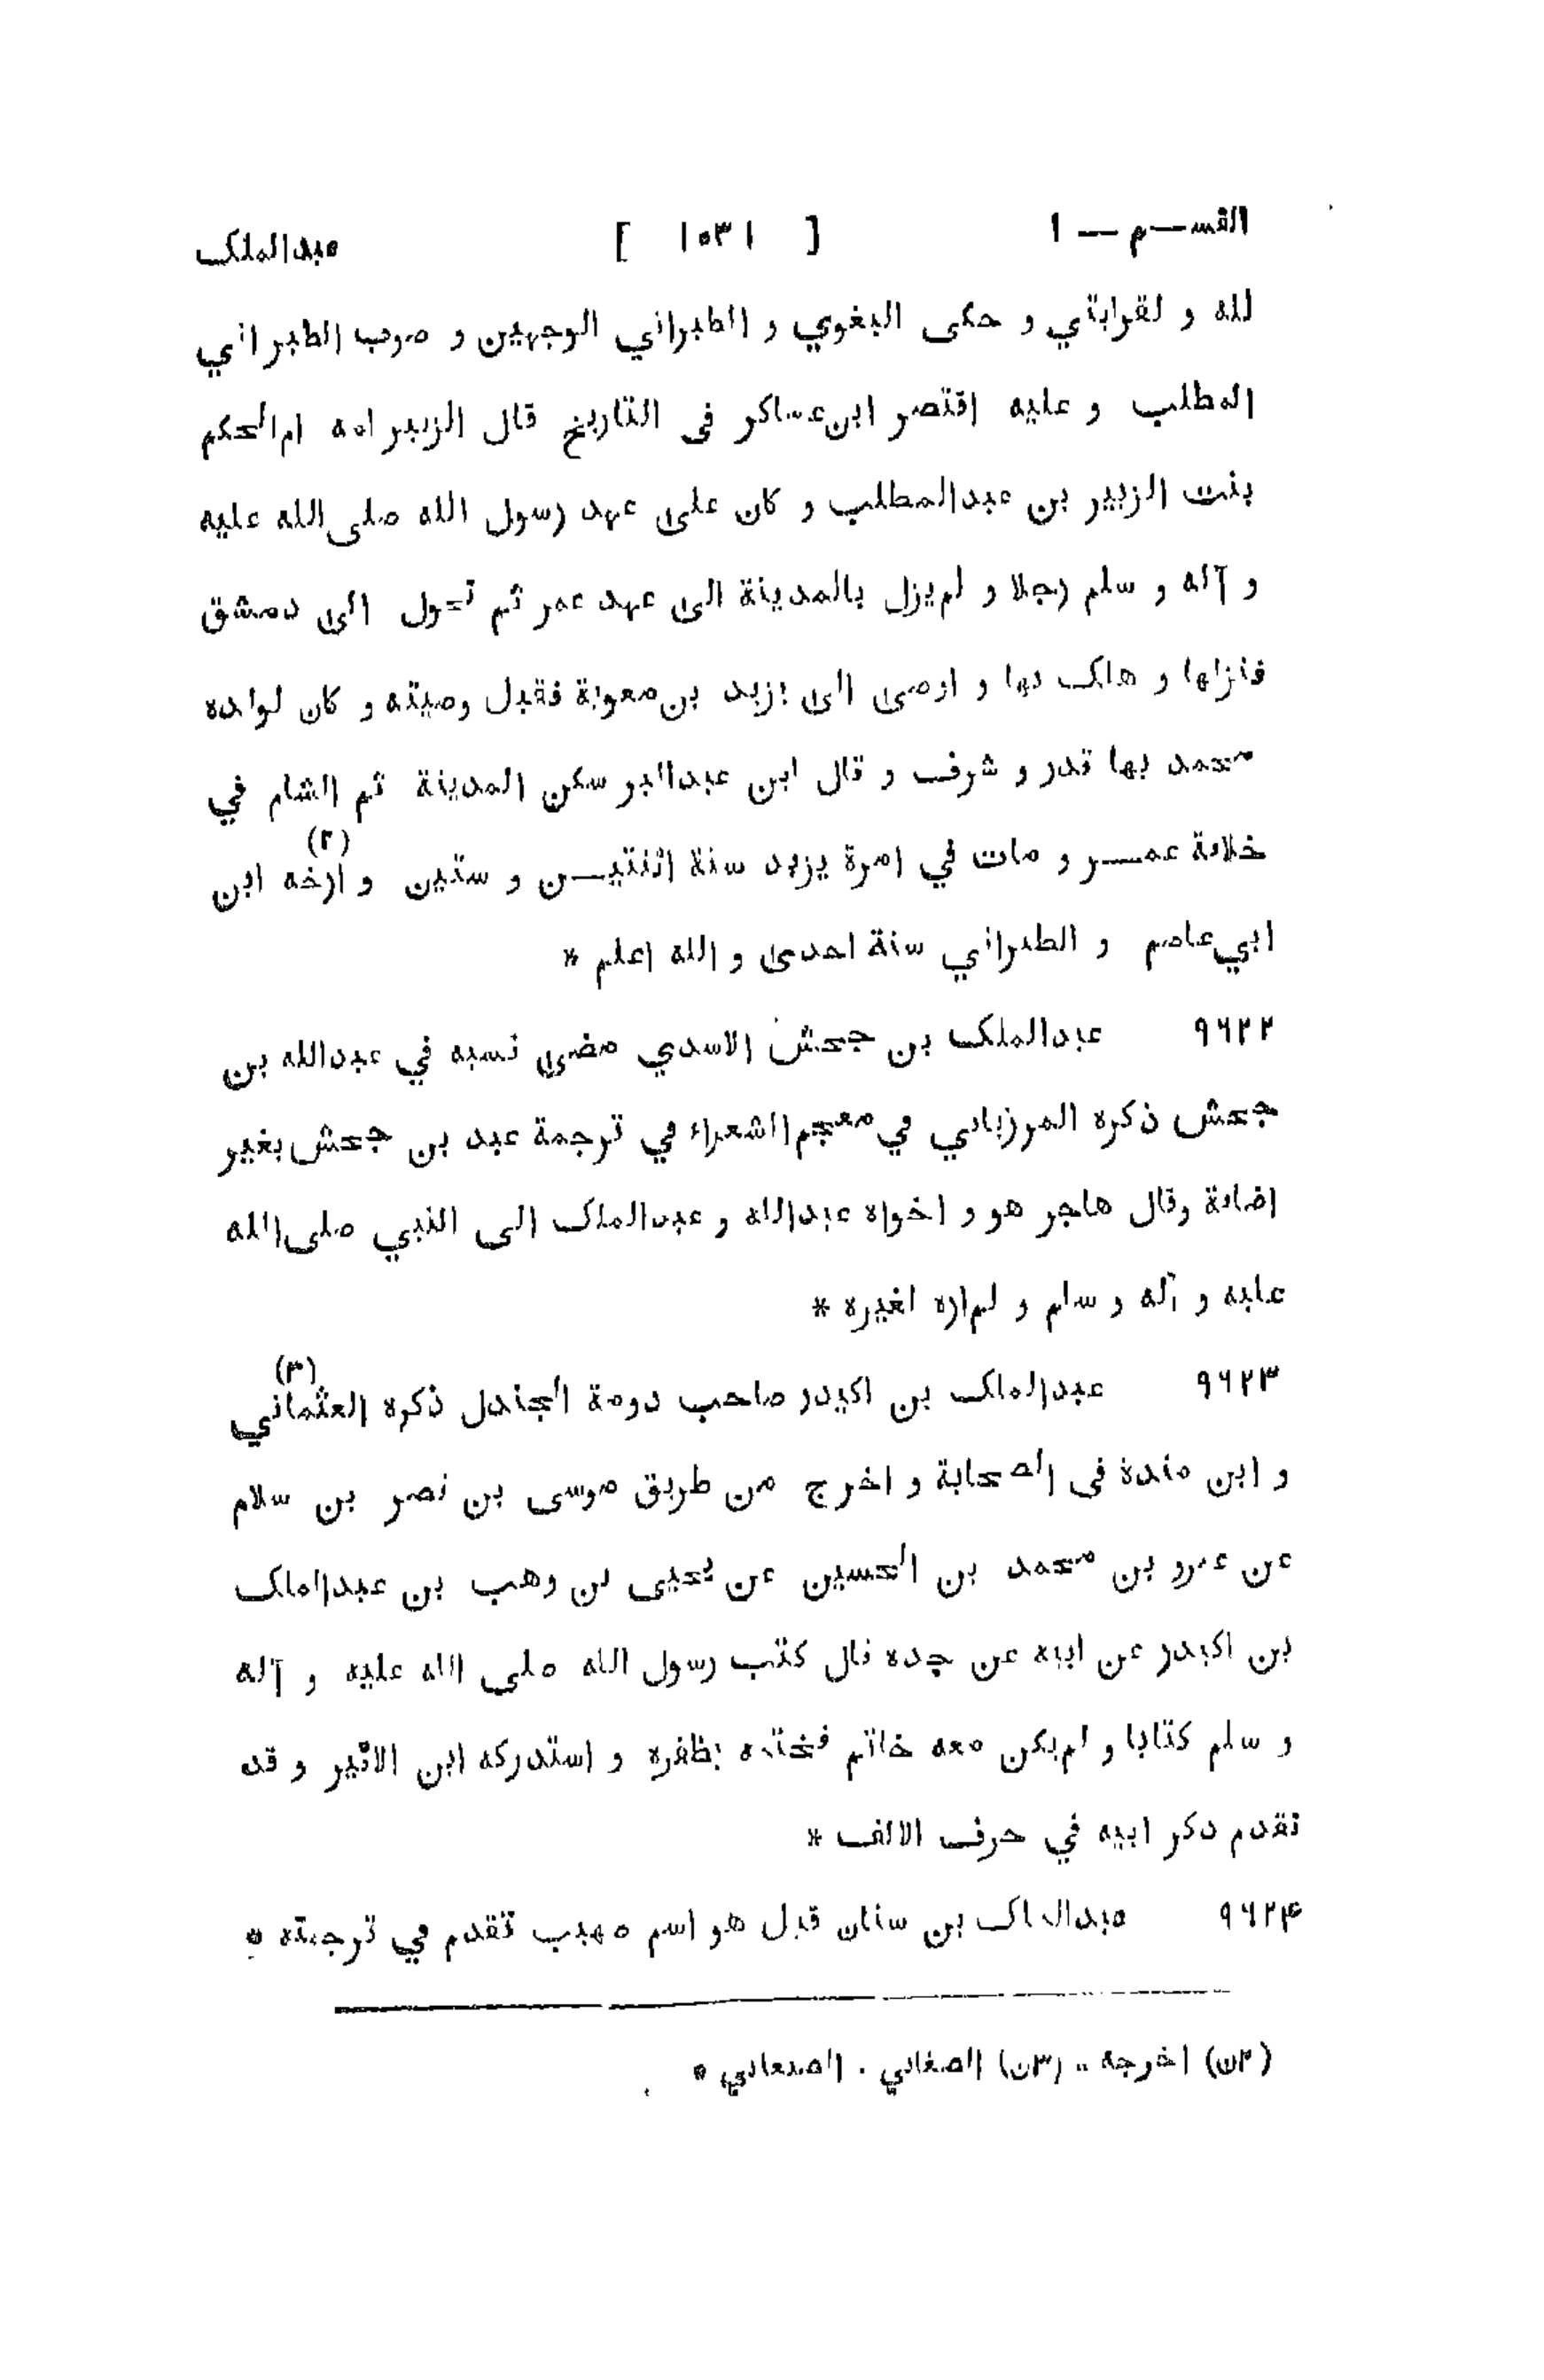 القســم — ١ [ ١٠٣١ ] عبدالملک
لله و لقرابتي و حكى البغوي و الطبراني الوجهين و صوب الطبراني
المطلب و عليه اقتصر ابن عساكر فى التاريخ قال الزبير امه ام الحكم
بنت الزبير بن عبدالمطلب و كان على عهد رسول الله صلى الله عليه
و آله و سلم رجلا و لم يزل بالمدينة الى عهد عمر ثم تحول الى دمشق
فنزلها و هلک بها و اوصى الى يزيد بن معوية فقبل وصيته و كان لولده
محمد بها قدر و شرف و قال ابن عبدالبر سكن المدينة ثم الشام في
خلافة عمــر و مات في امرة يزيد سنة اثنتيــن و ستين و ارخه (٢) ابن
ابي عاصم و الطبراني سنة احدى و الله اعلم *
٩٦٢٢ عبدالملک بن جحش الاسدي مضى نسبه في عبدالله بن
جحش ذكره المرزباني في معجم الشعراء في ترجمة عبد بن جحش بغير
اضافة وقال هاجر هو و اخواه عبدالله و عبدالملک الى النبي صلى الله
عليه و آله و سلم و لم اره لغيره *
٩٦٢٣ عبدالملک بن اكيدر صاحب دومة الجندل ذكره العثماني (٣)
و ابن مندة فى الصحابة و اخرج من طريق موسى بن نصر بن سلام
عن عمرو بن محمد بن الحسين عن يحيى بن وهب بن عبدالملک
بن اكيدر عن ابيه عن جده قال كتب رسول الله صلى الله عليه و آله
و سلم كتابا و لم يكن معه خاتم فختمه بظفره و استدركه ابن الاثير و قد
تقدم ذكر ابيه في حرف الالف *
٩٦٢۴ عبدالملک بن سنان قيل هو اسم صهيب تقدم في ترجمته *
(٢ن) اخرجه - (٣ن) الصغاني . الصنعاني *